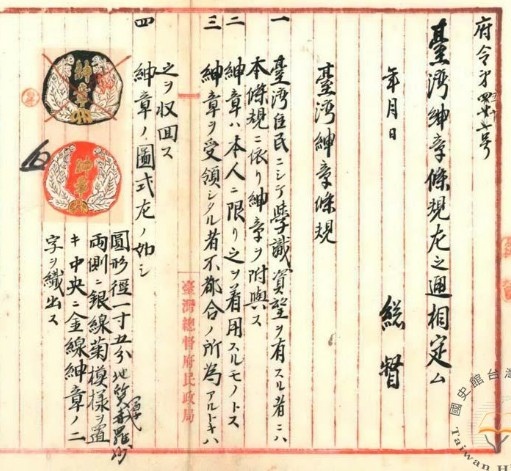 府令第四十七号
臺灣紳章條規左之通相定ム
年月日
総督
臺灣紳章條規
一 臺灣住民ニシテ学識資望ヲ有スル者ニハ
本條規ニ依リ紳章ヲ附與ス
二 紳章ハ本人ニ限リ之ヲ着用スルモノトス
三 紳章ヲ受領シタル者不都合ノ所為アルトキハ
之ヲ収回ス
四 紳章ノ圖式左ノ如シ
圓形徑一寸五分地質羅紗
両側ニ銀線菊模様ヲ置
キ中央ニ金線紳章ノ二
字ヲ織出ス
紳章
紳章
臺灣總督府民政局
國史館台灣
Taiwan H